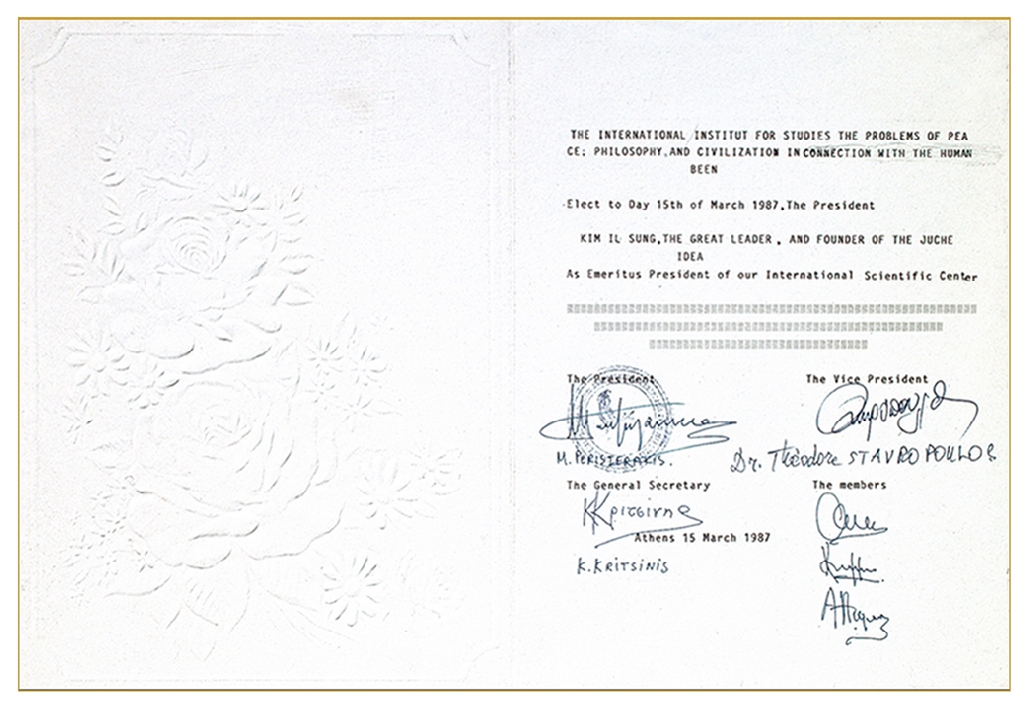 THE INTERNATIONAL INSTITUT FOR STUDIES THE PROBLEMS OF PEA
CE; PHILOSOPHY,AND CIVILIZATION IN CONNECTION WITH THE HUMAN
BEEN
Elect to Day 15th of March 1987.The President
KIM IL SUNG,THE GREAT LEADER , AND FOUNDER OF THE JUCHE
IDEA
As Emeritus President of our International Scientific Center
The President
The Vice President
M. PERISTERAKIS.
Dr. Théodore STAVROPOULOS
The General Secretary
The members
Athens 15 March 1987
K.KRITSINIS